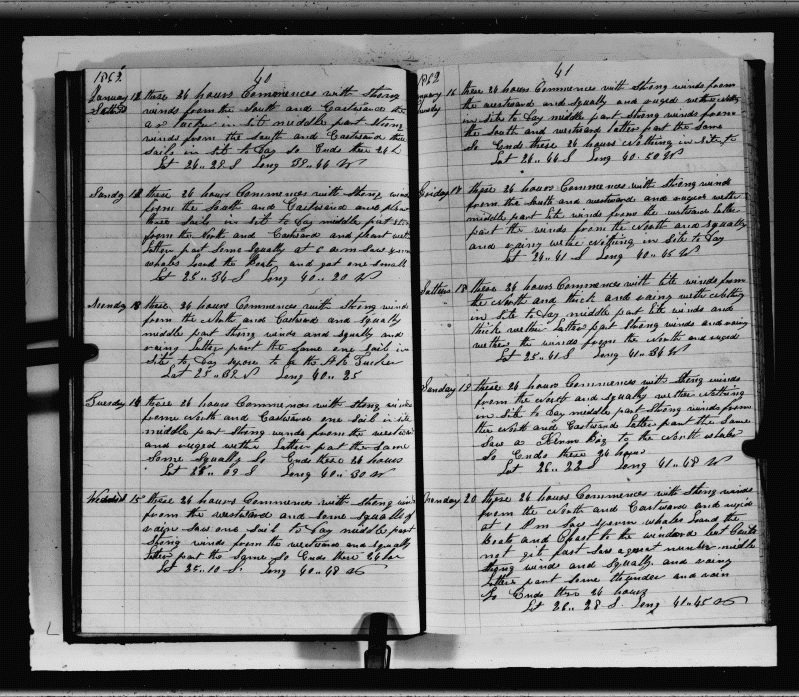 1862 40
January 11 these 24 hours Commences with Strong
winds from the South and Eastward the
in Sit middle part Strong
winds from the South and Eastward three
Sails in Sit to Day So Ends these 24 h
Lat 24 .. 28 S Long 39 .. 44 W
Sunday 12 these 24 hours Commences with Strong wind
from the South and Eastward and
three Sails in Sit to Day middle part
from the North and Eastward and
latter part Some Squally at 6 a m Saw
whales and got one Small
Lat 25 .. 34 S Long 40 .. 20 W
Munday 13 these 24 hours Commences with Strong winds
from the North and Eastward and Squally
middle part Strong winds and Squally and
raing latter part the Same one Sail in
Site to Day Tucker
Lat 25 .. Long 40 .. 25
Tuesday 14 these 24 hours Commences with Strong winds
from North and Eastward one Sail in site
middle part Strong winds from the westward
and ruged wether latter part the Same
Some Squally So Ends these 24 hours
Lat 09 S Long 40 .. 30 W
15 these 24 hours Commences with Strong wind
from the westward and Some Squalls of
rain Saw one Sail to Day middle part
Strong winds from the westward and Squally
latter part the Same So Ends these 24 hor
Lat 25 .. 10 S. Long 40 .. 48 W
1862 41
16 these 24 hours Commences with Strong winds from
the westward and Squally and ruged wether Nothing
in Site to Day middle part Strong winds from
the South and westward latter part the Same
So Ends these 24 hours Nothing in Site
Lat 24 .. 44 S Long 40 .. 50 W
Friday 17 these 24 hours Commences with Strong wind
from the South and westward and ruged wether
middle part lite winds from the westward latter
part the winds from the North and Squally
and rainy wether Nothing in Site to Day
Lat 24 .. 41 S Long 40 .. 45 W
18 these 24 hours Commences with lite winds from
the North and thick and rainy wether Nothing
in Site to Day middle part lite winds and
thick wether latter part Strong winds and rainy
wether the winds from the North and ruged
Lat 25 .. 41 S Long 41 .. 34 W
Sunday 19 these 24 hours Commences with Strong winds
from the North and Squaly wether Nothing
in Site to Day middle part Strong winds from
the North and Eastward latter part the Same
Saw a to the North
So Ends these 24 hours
Lat 26 .. 22 S Long 41 .. 48 W
Monday 20 these 24 hours Commences with Strong winds
from the North and Eastward and
at 1 P m Saw Sperm whales the
Boats and to the windward but
not git fast Saw a number middle
Strong winds and Squally and rainy
latter part Some thunder and rain
So Ends thes 24 hours
Lat 26 .. 28 S. Long 41 .. 45 W